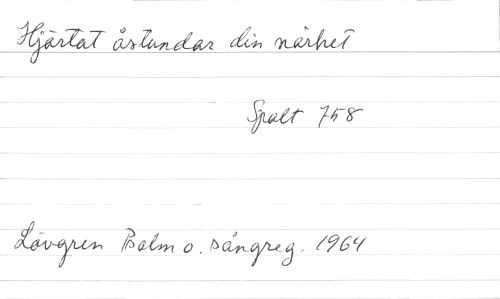 Hjärtat åstundar din närhet
Spalt 758
Lövgren Psalm o. sångreg. 1964